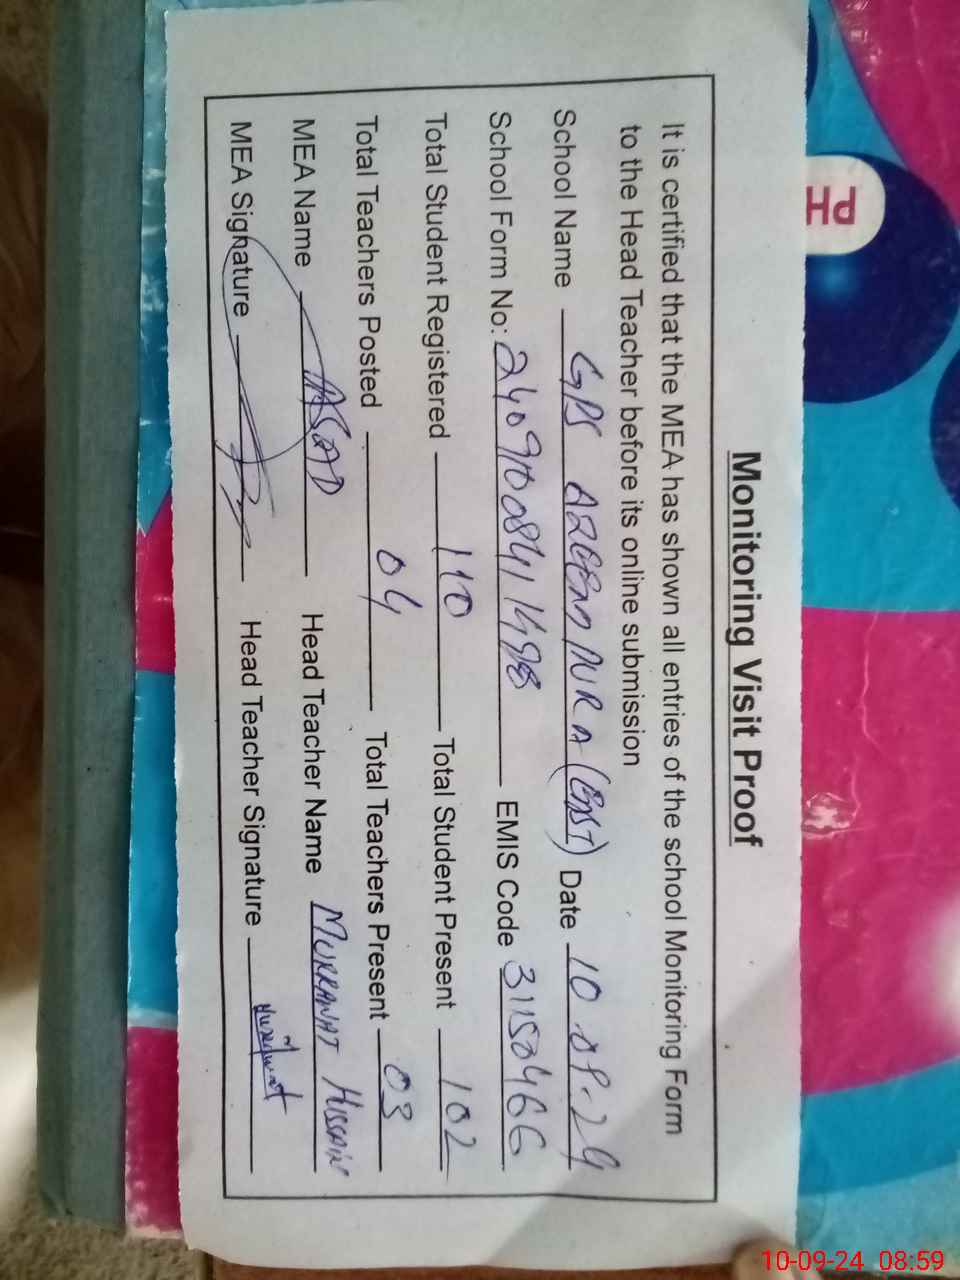 Monitoring Visit Proof
It is certified that the MEA has shown all entries of the school Monitoring Form
to the Head Teacher before its online submission
School Name GPS (East) Date 10-09-24
School Form No: EMIS Code 31150466
Total Student Registered 110 Total Student Present 102
Total Teachers Posted 04 Total Teachers Present 03
MEA Name ASAD Head Teacher Name
MEA Signature Head Teacher Signature
PH
10-09-24 08:59